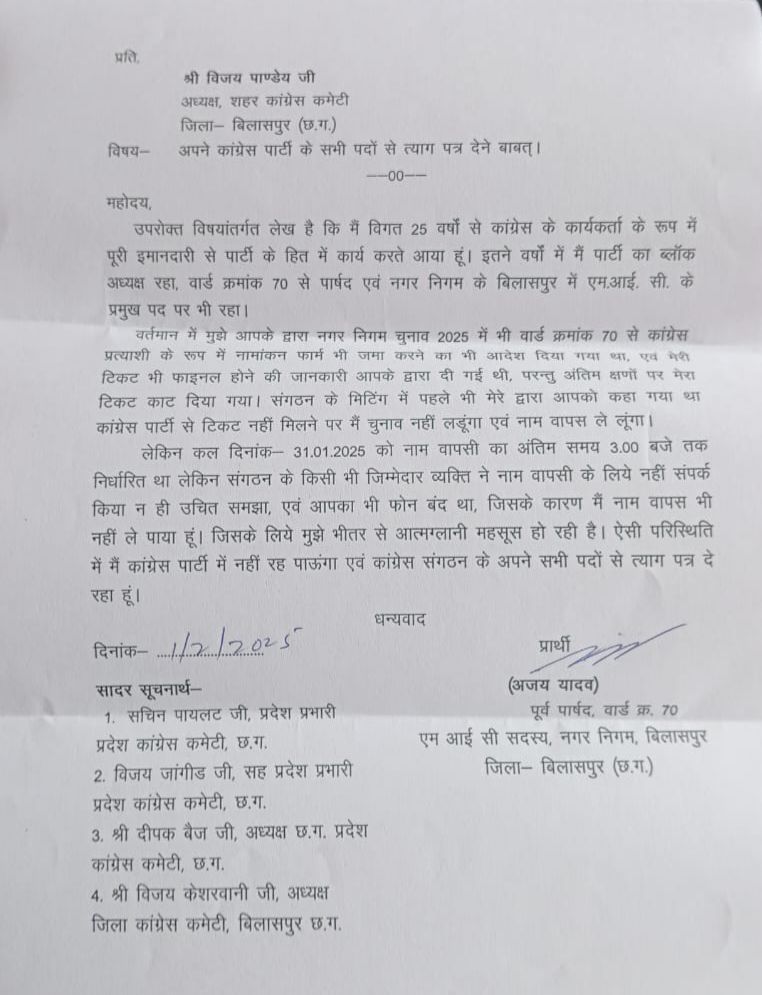 प्रति,
श्री विजय पाण्डेय जी
अध्यक्ष, शहर कांग्रेस कमेटी
जिला– बिलासपुर (छ.ग.)
विषय– अपने कांग्रेस पार्टी के सभी पदों से त्याग पत्र देने बाबत्।
––00––
महोदय,
उपरोक्त विषयांतर्गत लेख है कि मैं विगत 25 वर्षो से कांग्रेस के कार्यकर्ता के रूप में
पूरी इमानदारी से पार्टी के हित में कार्य करते आया हूं। इतने वर्षो में मैं पार्टी का ब्लॉक
अध्यक्ष रहा, वार्ड क्रमांक 70 से पार्षद एवं नगर निगम के बिलासपुर में एम.आई. सी. के
प्रमुख पद पर भी रहा।
वर्तमान में मुझे आपके द्वारा नगर निगम चुनाव 2025 में भी वार्ड क्रमांक 70 से कांग्रेस
प्रत्याशी के रूप में नामांकन फार्म भी जमा करने का भी आदेश दिया गया था, एवं मेरी
टिकट भी फाइनल होने की जानकारी आपके द्वारा दी गई थी, परन्तु अंतिम क्षणों पर मेरा
टिकट काट दिया गया। संगठन के मिटिंग में पहले भी मेरे द्वारा आपको कहा गया था
कांग्रेस पार्टी से टिकट नहीं मिलने पर मैं चुनाव नहीं लडूंगा एवं नाम वापस ले लूंगा।
लेकिन कल दिनांक– 31.01.2025 को नाम वापसी का अंतिम समय 3.00 बजे तक
निर्धारित था लेकिन संगठन के किसी भी जिम्मेदार व्यक्ति ने नाम वापसी के लिये नहीं संपर्क
किया न ही उचित समझा, एवं आपका भी फोन बंद था, जिसके कारण मैं नाम वापस भी
नहीं ले पाया हूं। जिसके लिये मुझे भीतर से आत्मग्लानी महसूस हो रही है। ऐसी परिस्थिति
में मैं कांग्रेस पार्टी में नहीं रह पाऊंगा एवं कांग्रेस संगठन के अपने सभी पदों से त्याग पत्र दे
रहा हूं।
धन्यवाद
दिनांक– 1/2/2025
प्रार्थी
(अजय यादव)
पूर्व पार्षद, वार्ड क्र. 70
एम आई सी सदस्य, नगर निगम, बिलासपुर
जिला– बिलासपुर (छ.ग.)
सादर सूचनार्थ–
1. सचिन पायलट जी, प्रदेश प्रभारी
प्रदेश कांग्रेस कमेटी, छ.ग.
2. विजय जांगीड जी, सह प्रदेश प्रभारी
प्रदेश कांग्रेस कमेटी, छ.ग.
3. श्री दीपक बैज जी, अध्यक्ष छ.ग. प्रदेश
कांग्रेस कमेटी, छ.ग.
4. श्री विजय केशरवानी जी, अध्यक्ष
जिला कांग्रेस कमेटी, बिलासपुर छ.ग.